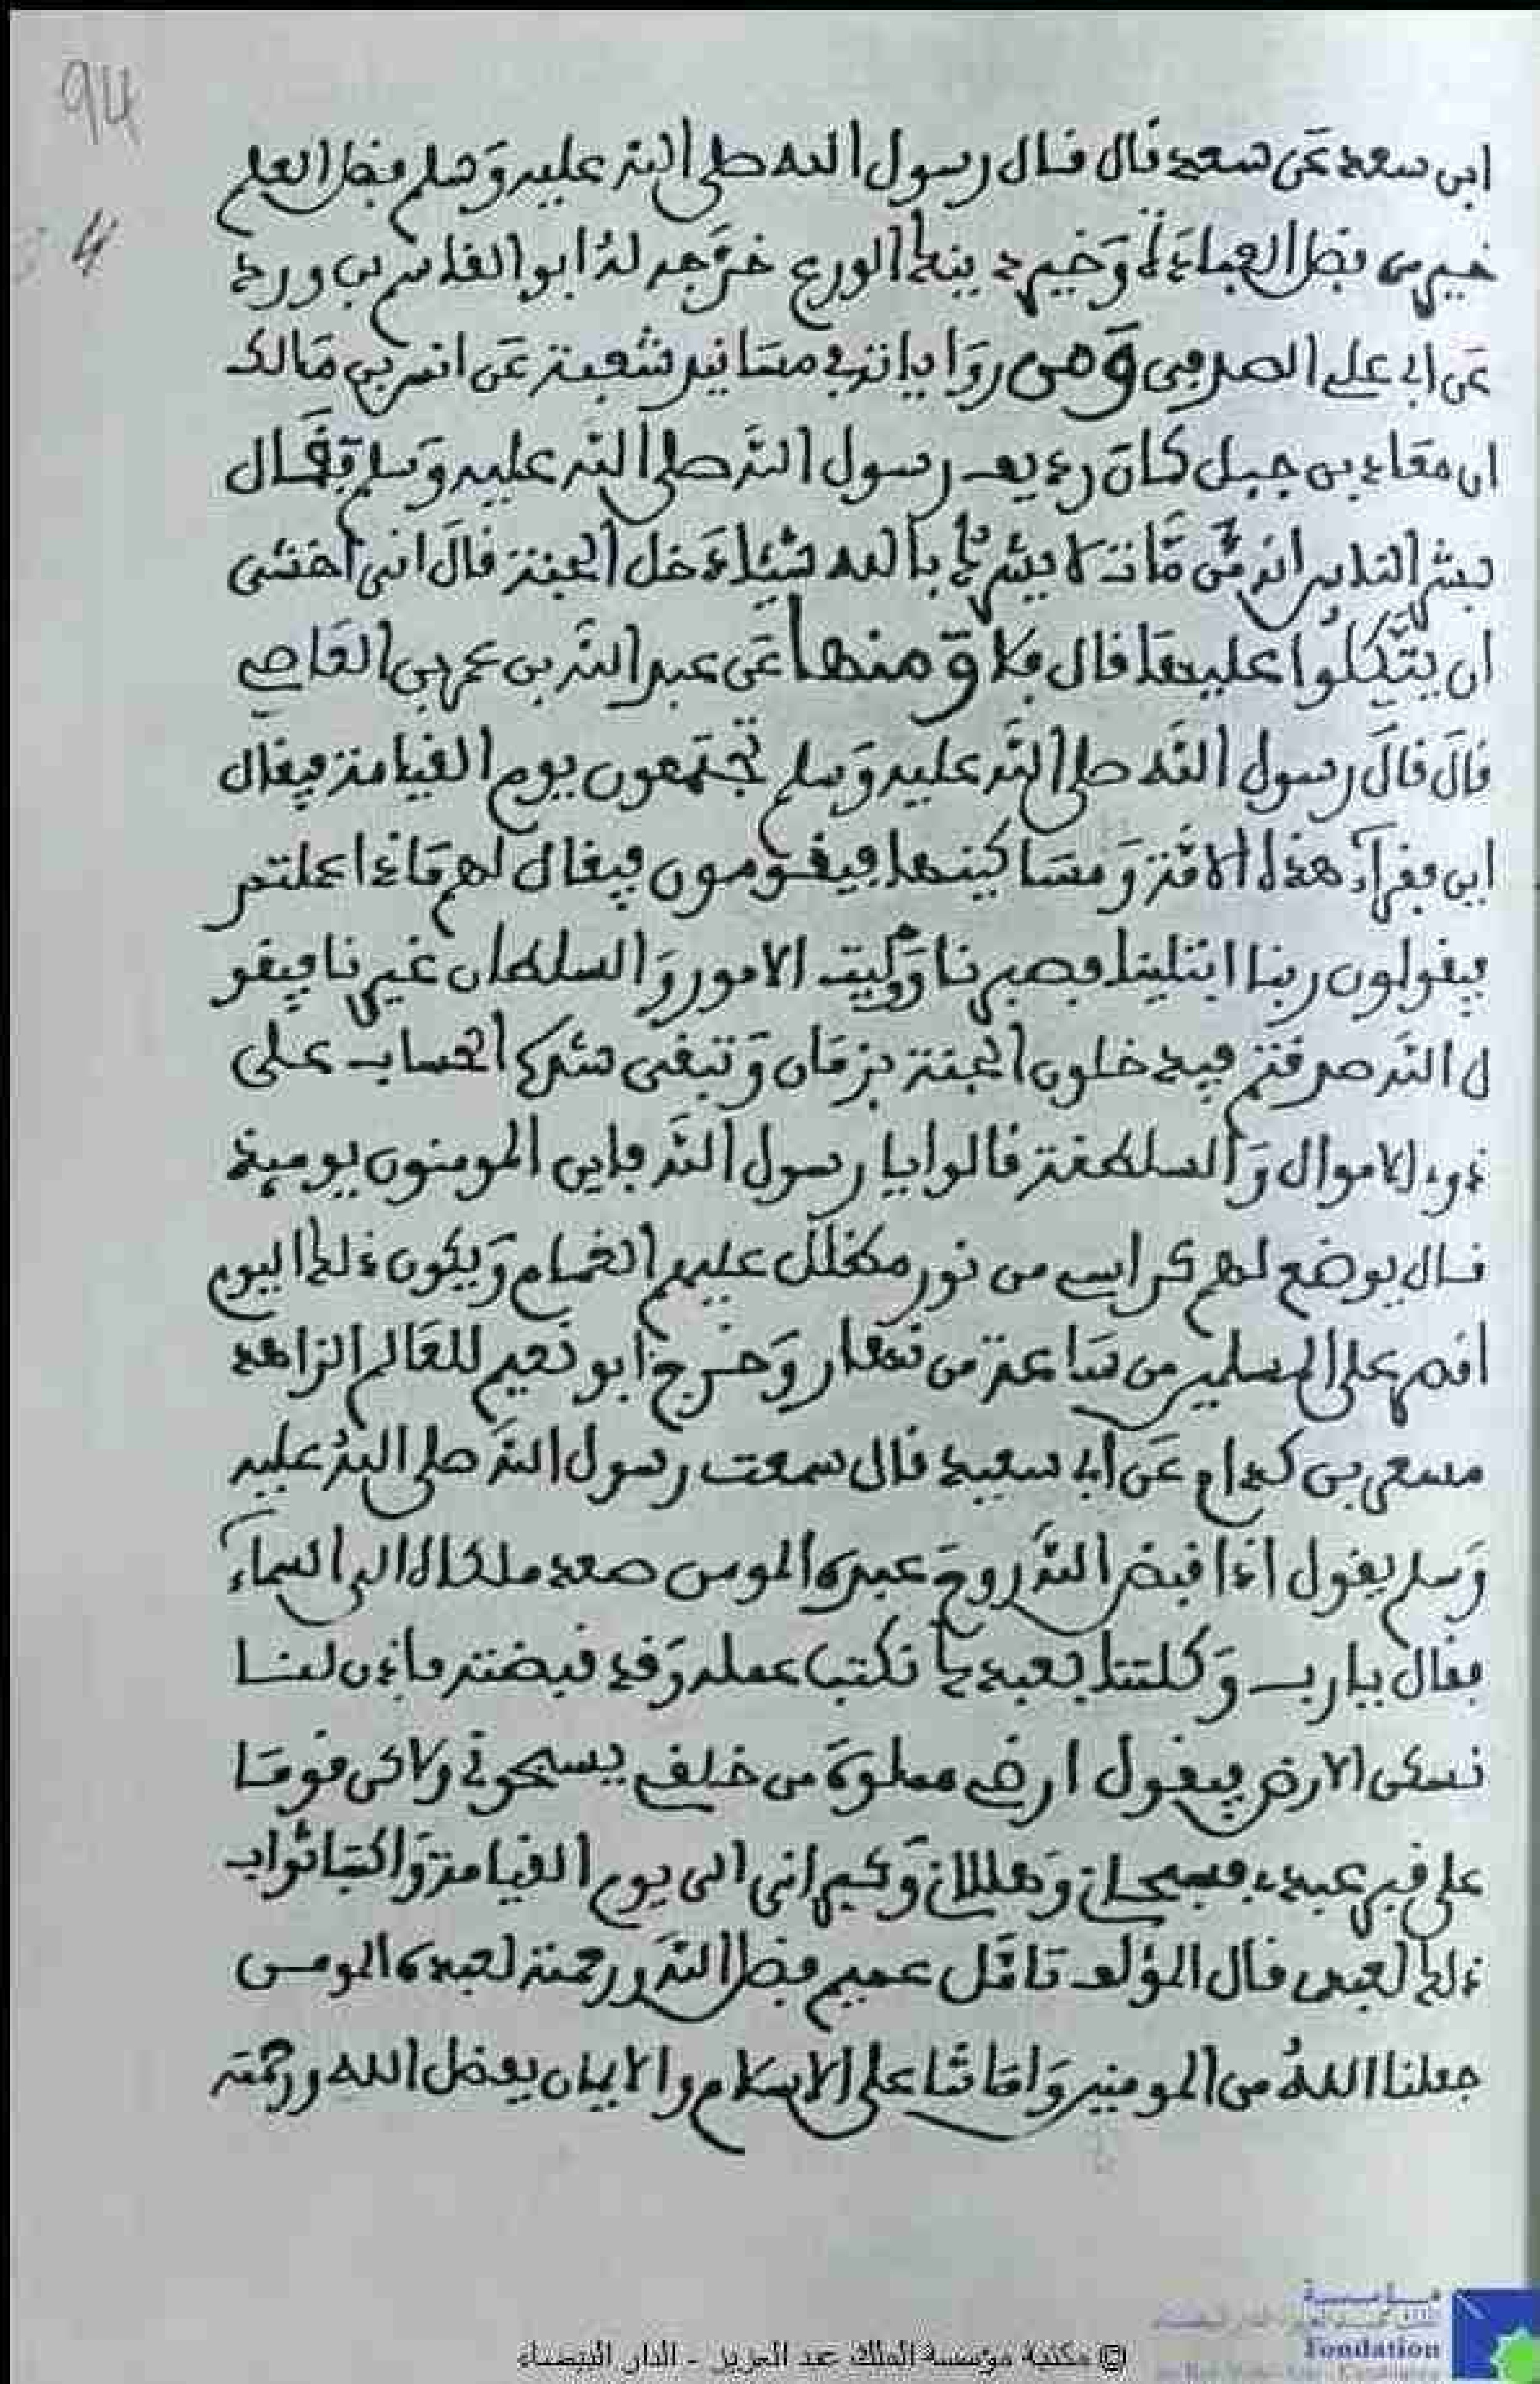 94
4
ابن سعد عن سعد قال قال رسول الله صلى الله عليه وسلم فضل العلم
خير من فضل العبادة وخير دينكم الورع خرجه له ابو القاسم بن ورد
عن ابي علي الصدفي ومن رواياته في مسانيد شعبة عن انس بن مالك
ان معاذ بن جبل كان رديف رسول الله صلى الله عليه وسلم فقال
بشر الناس انه من مات لا يشرك بالله شيئا دخل الجنة قال اني اخشى
ان يتكلوا عليها قال فلا ومنها عن عبد الله بن عمر بن العاصي
قال قال رسول الله صلى الله عليه وسلم تجتمعون يوم القيامة فيقال
اين فقراء هذه الامة ومساكينها فيقومون فيقال لهم ماذا عملتم
فيقولون ربنا ابتلينا فصبرنا ووليت الامور والسلطان غيرنا فيقو
ل الله صدقتم فيدخلون الجنة بزمان وتبقى شدة الحساب على
ذوي الاموال والسلطنة قالوا يا رسول الله فاين المومنون يوميذ
قال يوضع لهم كراسي من نور مظلل عليهم الغمام ويكون ذلك اليوم
اقصر على المسلمين من ساعة من نهار وخرج ابو نعيم للعالم الزاهد
مسعر بن كدام عن ابي سعيد قال سمعت رسول الله صلى الله عليه
وسلم يقول اذا قبض الله روح عبده المومن صعد ملكاه الى السماء
فقال يا رب وكلتنا بعبدك نكتب عمله وقد قبضته فاذن لنا
نسكن الارض فيقول ارضي مملوة من خلقي يسبحوني ولاكن قوما
على قبر عبدي فسبحاني وهللاني وكبراني الى يوم القيامة واكتبا ثواب
ذلك لعبدي قال المؤلف تامل عميم فضل الله ورحمته لعبده المومن
جعلنا الله من المومنين واماتنا على الاسلام والايمان بفضل الله ورحمته
© مكتبة مؤسسة الملك عبد العزيز - الدار البيضاء
Fondation